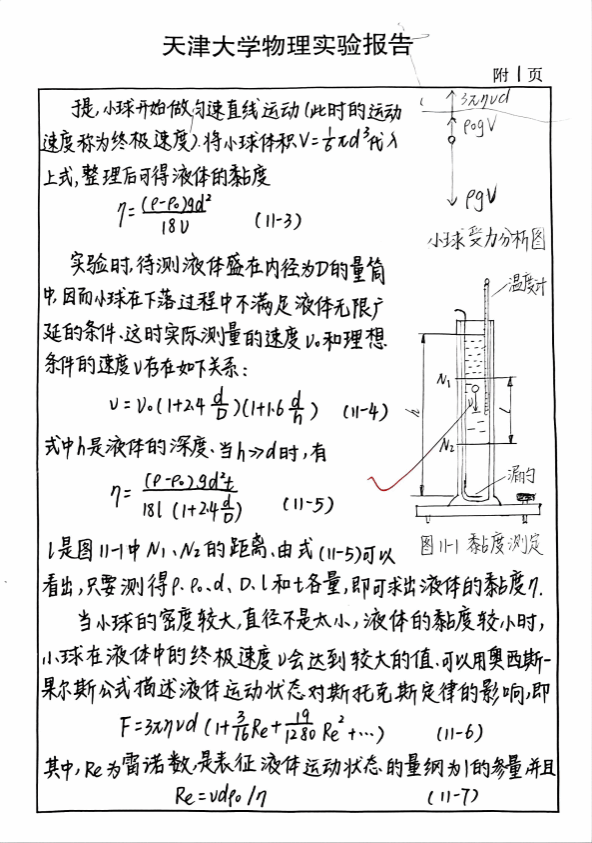 天津大学物理实验报告
附1页
于是,小球开始做匀速直线运动(此时的运动
速度称为终极速度).将小球体积V=1/6πd³代入
上式,整理后可得液体的黏度
η=(ρ-ρ₀)gd²/18υ (11-3)
实验时,待测液体盛在内径为D的量筒
中,因而小球在下落过程中不满足液体无限广
延的条件、这时实际测量的速度υ₀和理想
条件的速度υ存在如下关系:
υ=υ₀(1+2.4 d/D)(1+1.6 d/h) (11-4)
式中h是液体的深度、当h≫d时,有
η=(ρ-ρ₀)gd²t/18l(1+2.4 d/D) (11-5)
l是图11-1中N₁、N₂的距离、由式(11-5)可以
看出,只要测得ρ、ρ₀、d、D、l和t各量,即可求出液体的黏度η.
当小球的密度较大,直径不是太小,液体的黏度较小时,
小球在液体中的终极速度υ会达到较大的值、可以用奥西斯-
果尔斯公式描述液体运动状态对斯托克斯定律的影响,即
F=3πηυd(1+3/16 Re+19/1280 Re²+…) (11-6)
其中,Re为雷诺数,是表征液体运动状态的量纲为1的参量,并且
Re=υdρ₀/η (11-7)
3πηυd
ρ₀gV
ρgV
小球受力分析图
温度计
N₁
υ
h
l
N₂
漏勺
图11-1 黏度测定